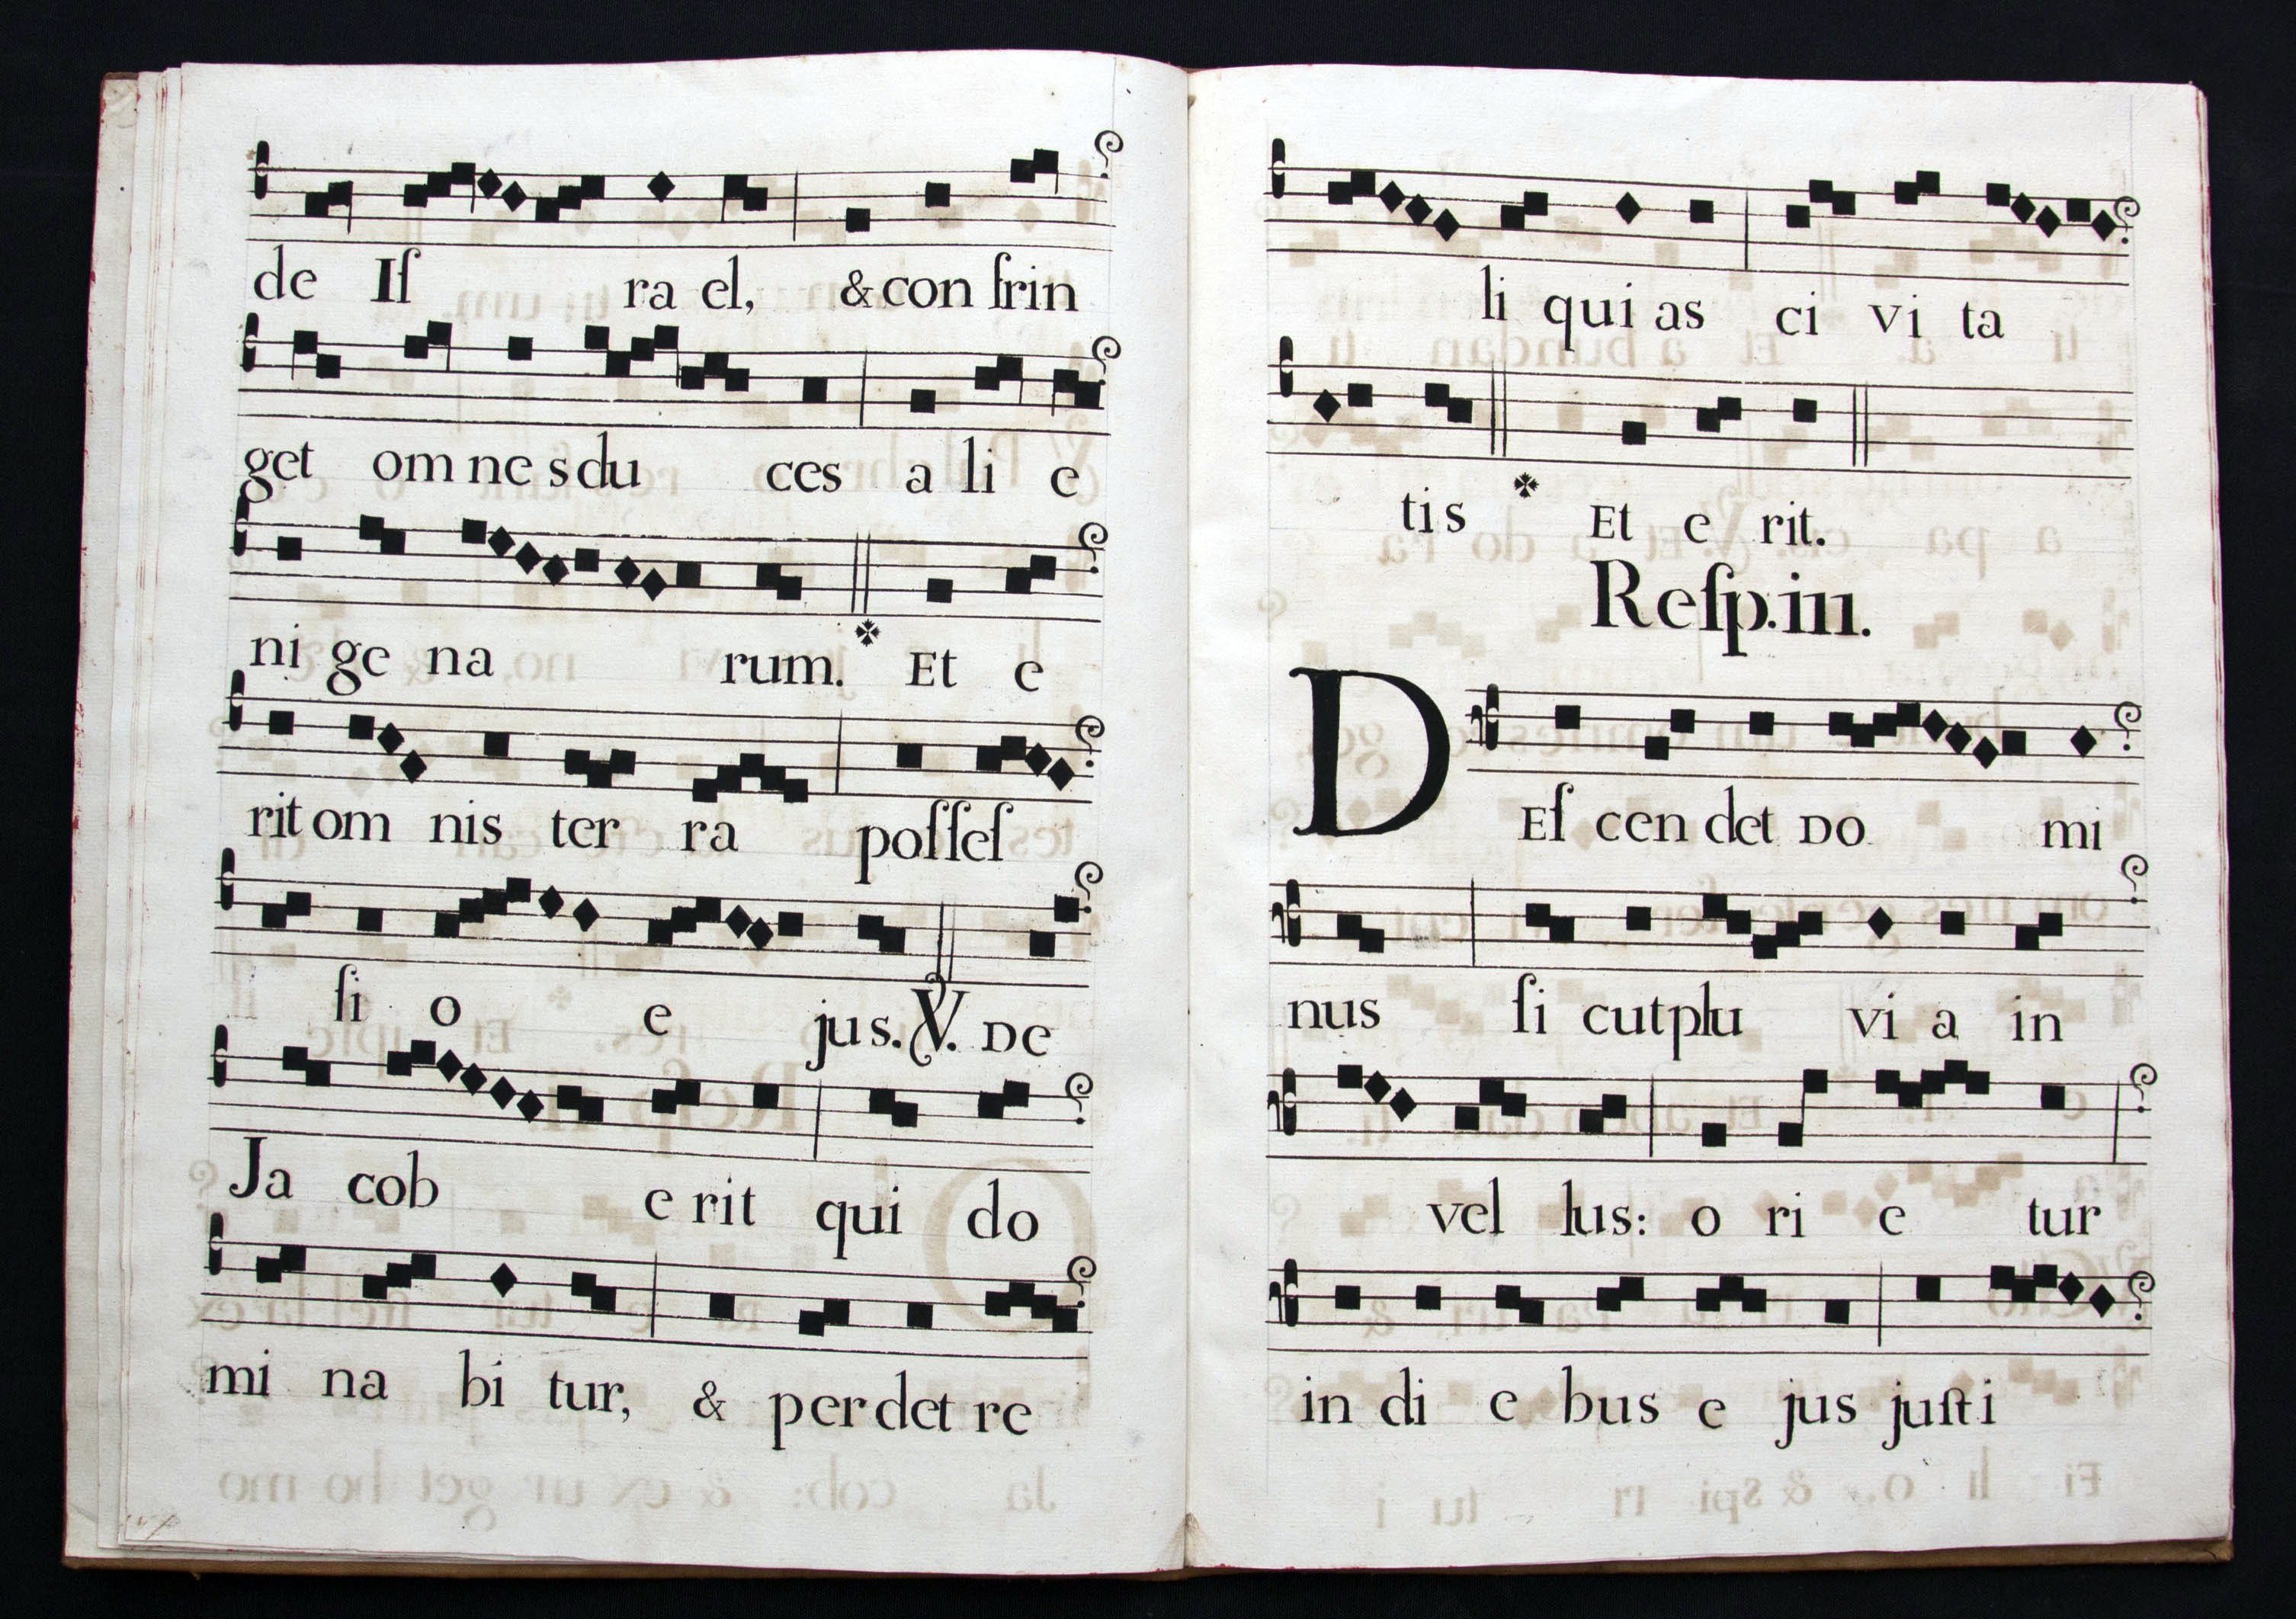 de Iſ ra el, & con frin
get om ne s du ces a li e
ni ge na rum. ✤ Et e
rit om nis ter ra poſſeſ
ſi o e jus. ℣. De
Ja cob e rit qui do
mi na bi tur, & per det re
li qui as ci vi ta
tis ✤ Et e rit.
Reſp. iii.
D Eſ cen det DO mi
nus ſi cut plu vi a in
vel lus: o ri e tur
in di e bus e jus juſt i